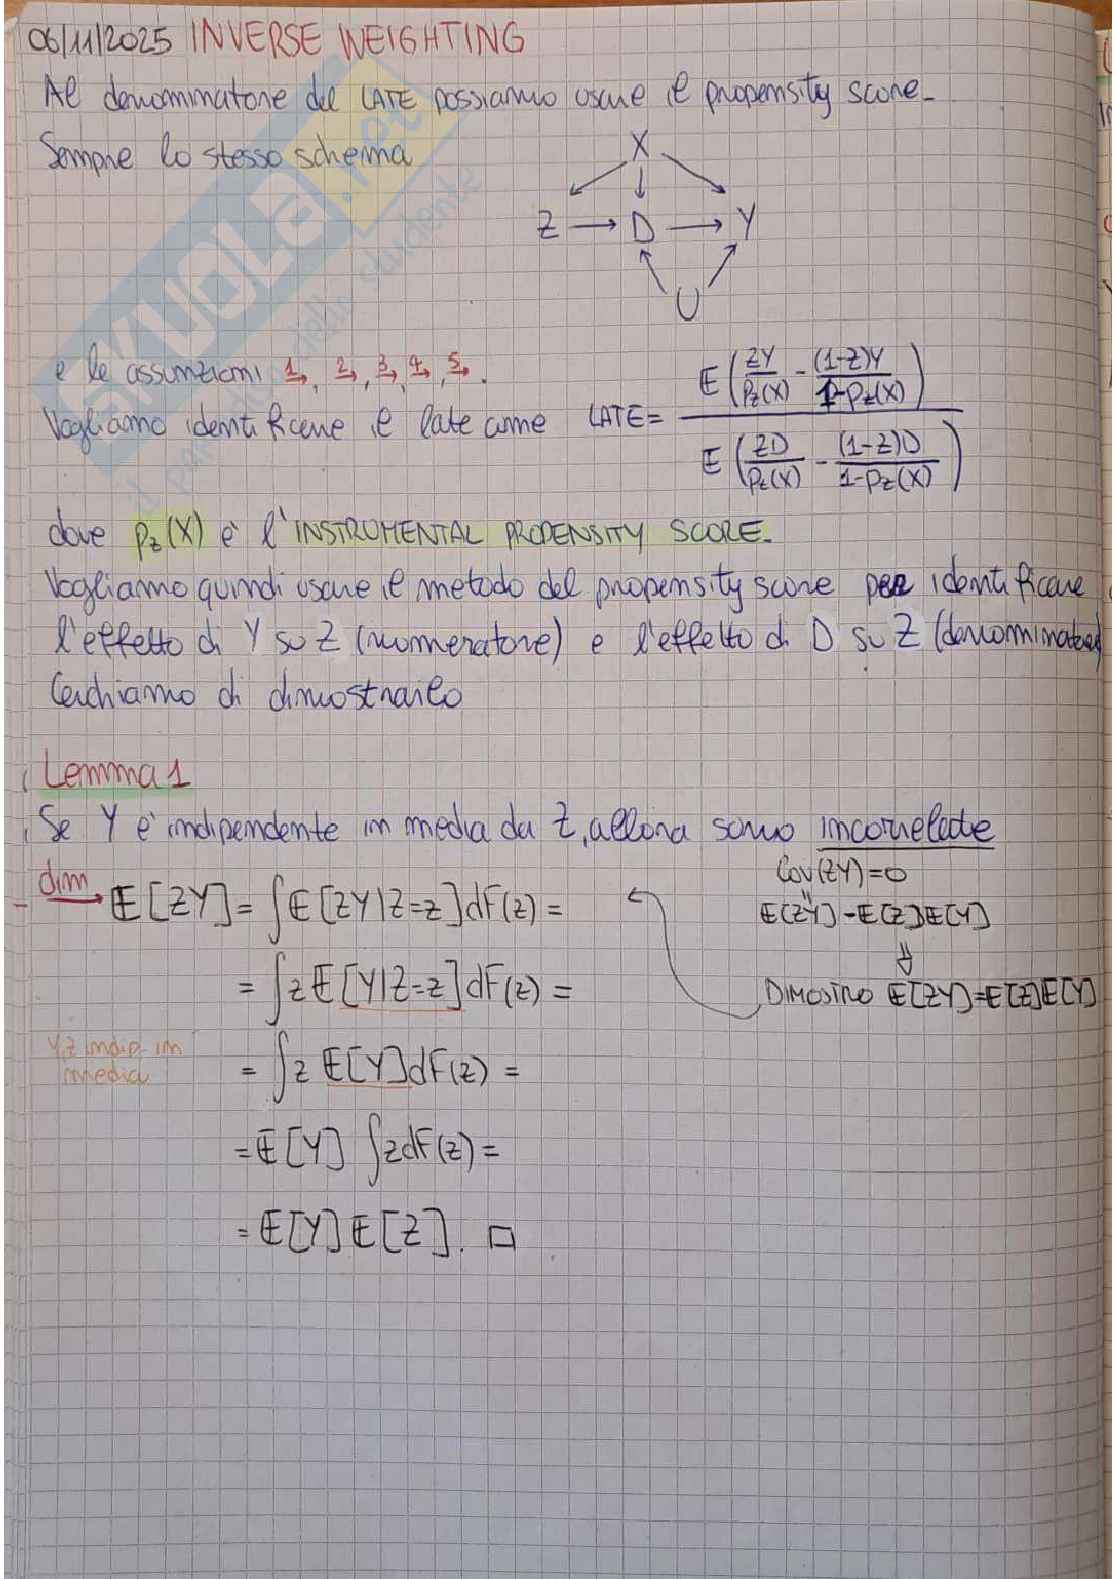 06/11/2025 INVERSE WEIGHTING
Al denominatore del LATE possiamo usare il propensity score.
Sempre lo stesso schema
X
Z → D → Y
U
e le assunzioni 1, 2, 3, 4, 5.
Vogliamo identificare il late come LATE = E(ZY/p_z(X) - (1-Z)Y/1-p_z(X)) / E(ZD/p_z(X) - (1-Z)D/1-p_z(X))
dove p_z(X) è l'INSTRUMENTAL PROPENSITY SCORE.
Vogliamo quindi usare il metodo del propensity score per identificare
l'effetto di Y su Z (numeratore) e l'effetto di D su Z (denominatore)
Cerchiamo di dimostrarlo
Lemma 1
Se Y è indipendente in media da Z, allora sono incorrelate
Cov(ZY)=0
"
E[ZY]-E[Z]E[Y]
⇓
DIMOSTRO E[ZY]=E[Z]E[Y]
dim → E[ZY] = ∫E[ZY|Z=z]dF(z) =
= ∫z E[Y|Z=z]dF(z) =
Y,Z indip. in
media
= ∫z E[Y]dF(z) =
= E[Y] ∫zdF(z) =
= E[Y]E[Z]. □
SKUOLA.net
il paradiso dello studente